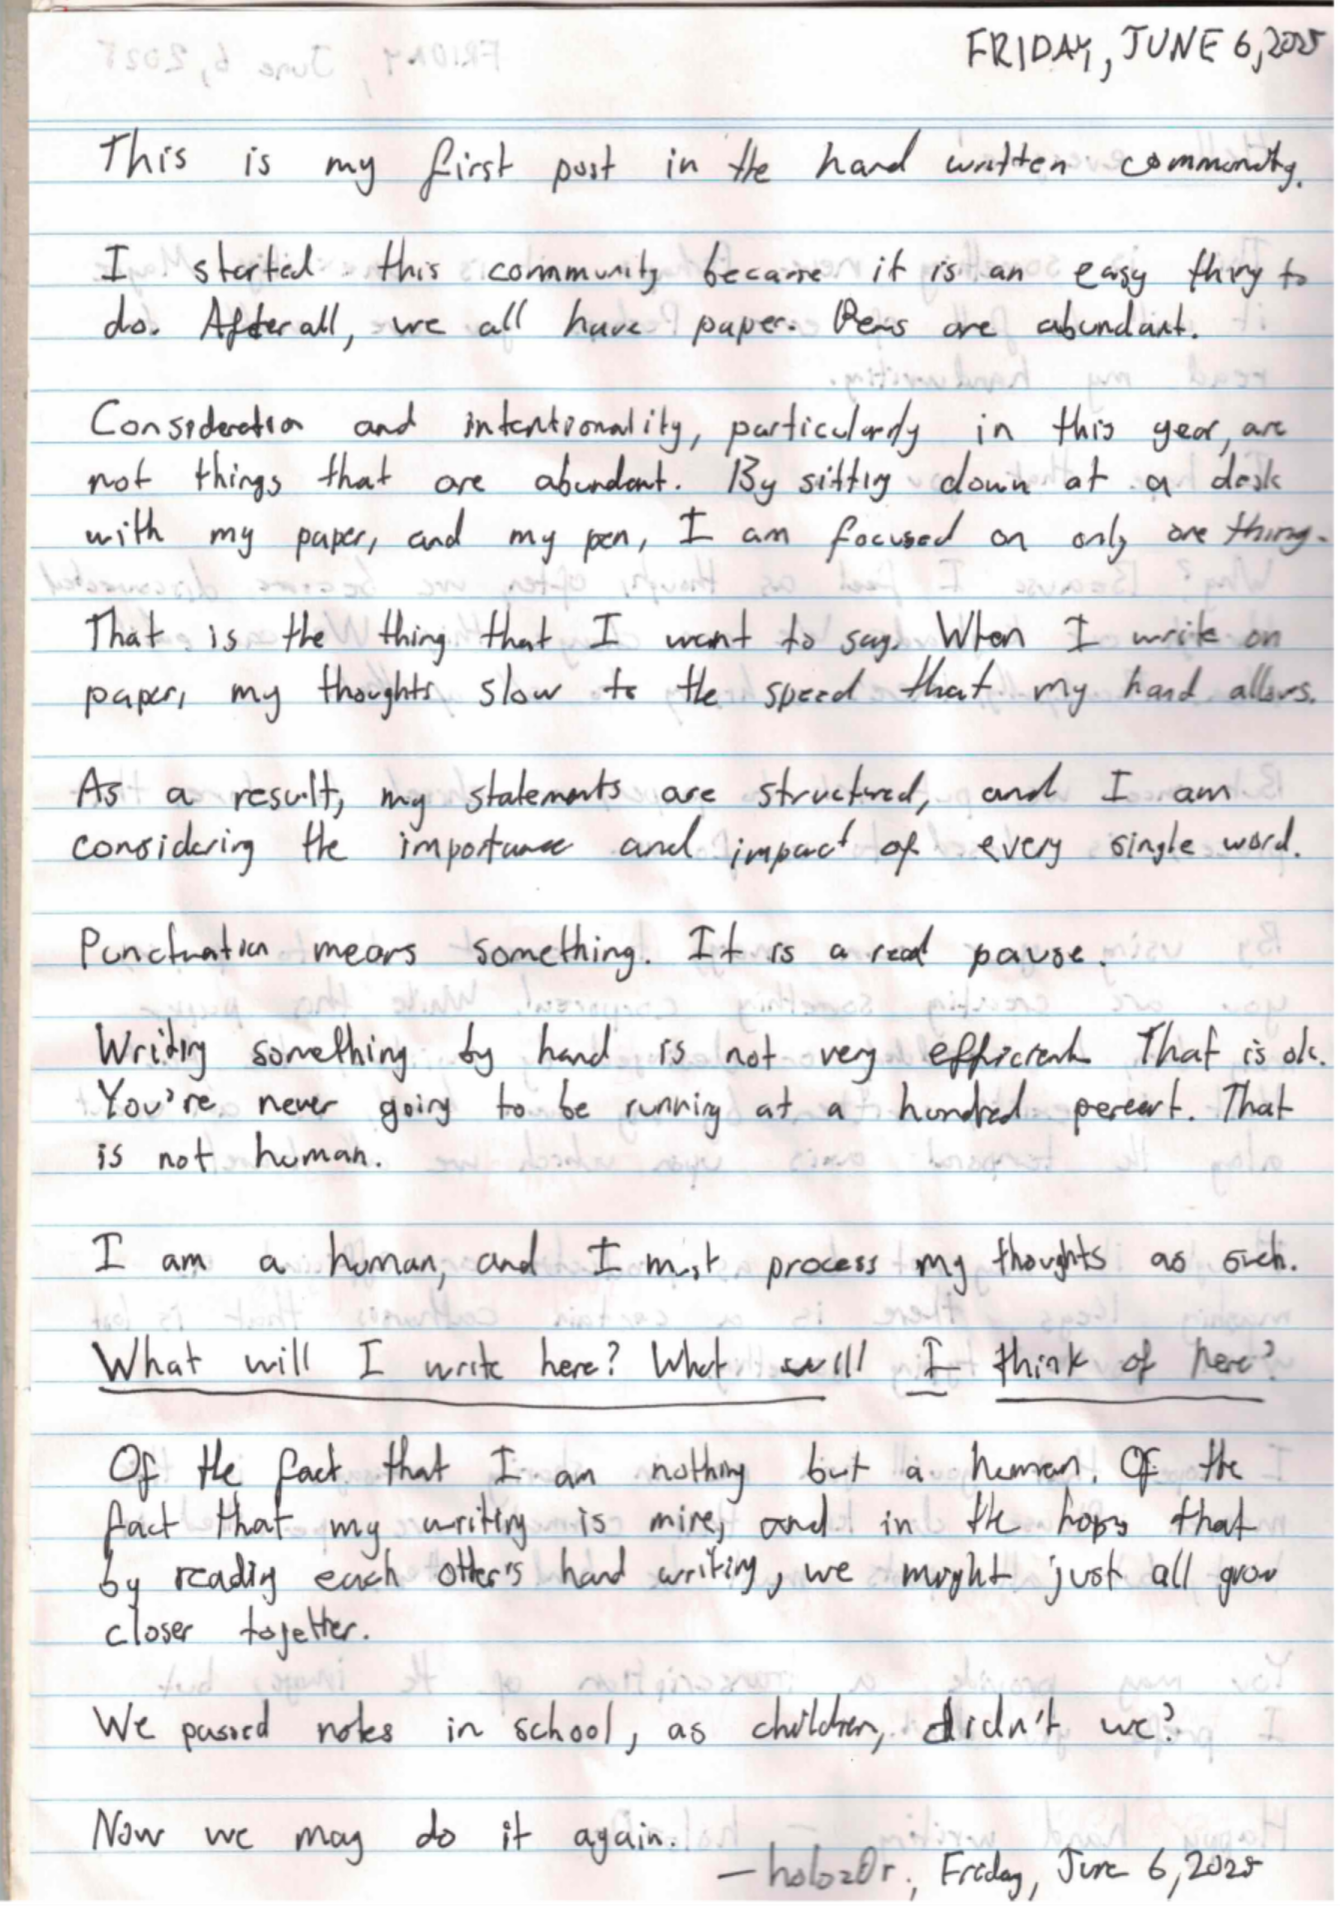 FRIDAY, JUNE 6, 2025
This is my first post in the hand written community.
I started this community because it is an easy thing to
do. After all, we all have paper. Pens are abundant.
Consideration and intentionality, particularly in this year, are
not things that are abundant. By sitting down at a desk
with my paper, and my pen, I am focused on only one thing.
That is the thing that I want to say. When I write on
paper, my thoughts slow to the speed that my hand allows.
As a result, my statements are structured, and I am
considering the importance and impact of every single word.
Punctuation means something. It is a real pause.
Writing something by hand is not very efficient. That is ok.
You're never going to be running at a hundred percent. That
is not human.
I am a human, and I must process my thoughts as such.
What will I write here? What will I think of here?
Of the fact that I am nothing but a human. Of the
fact that my writing is mine, and in the hopes that
by reading each other's hand writing, we might just all grow
closer together.
We passed notes in school, as children, didn't we?
Now we may do it again.
— holoz0r, Friday, June 6, 2025